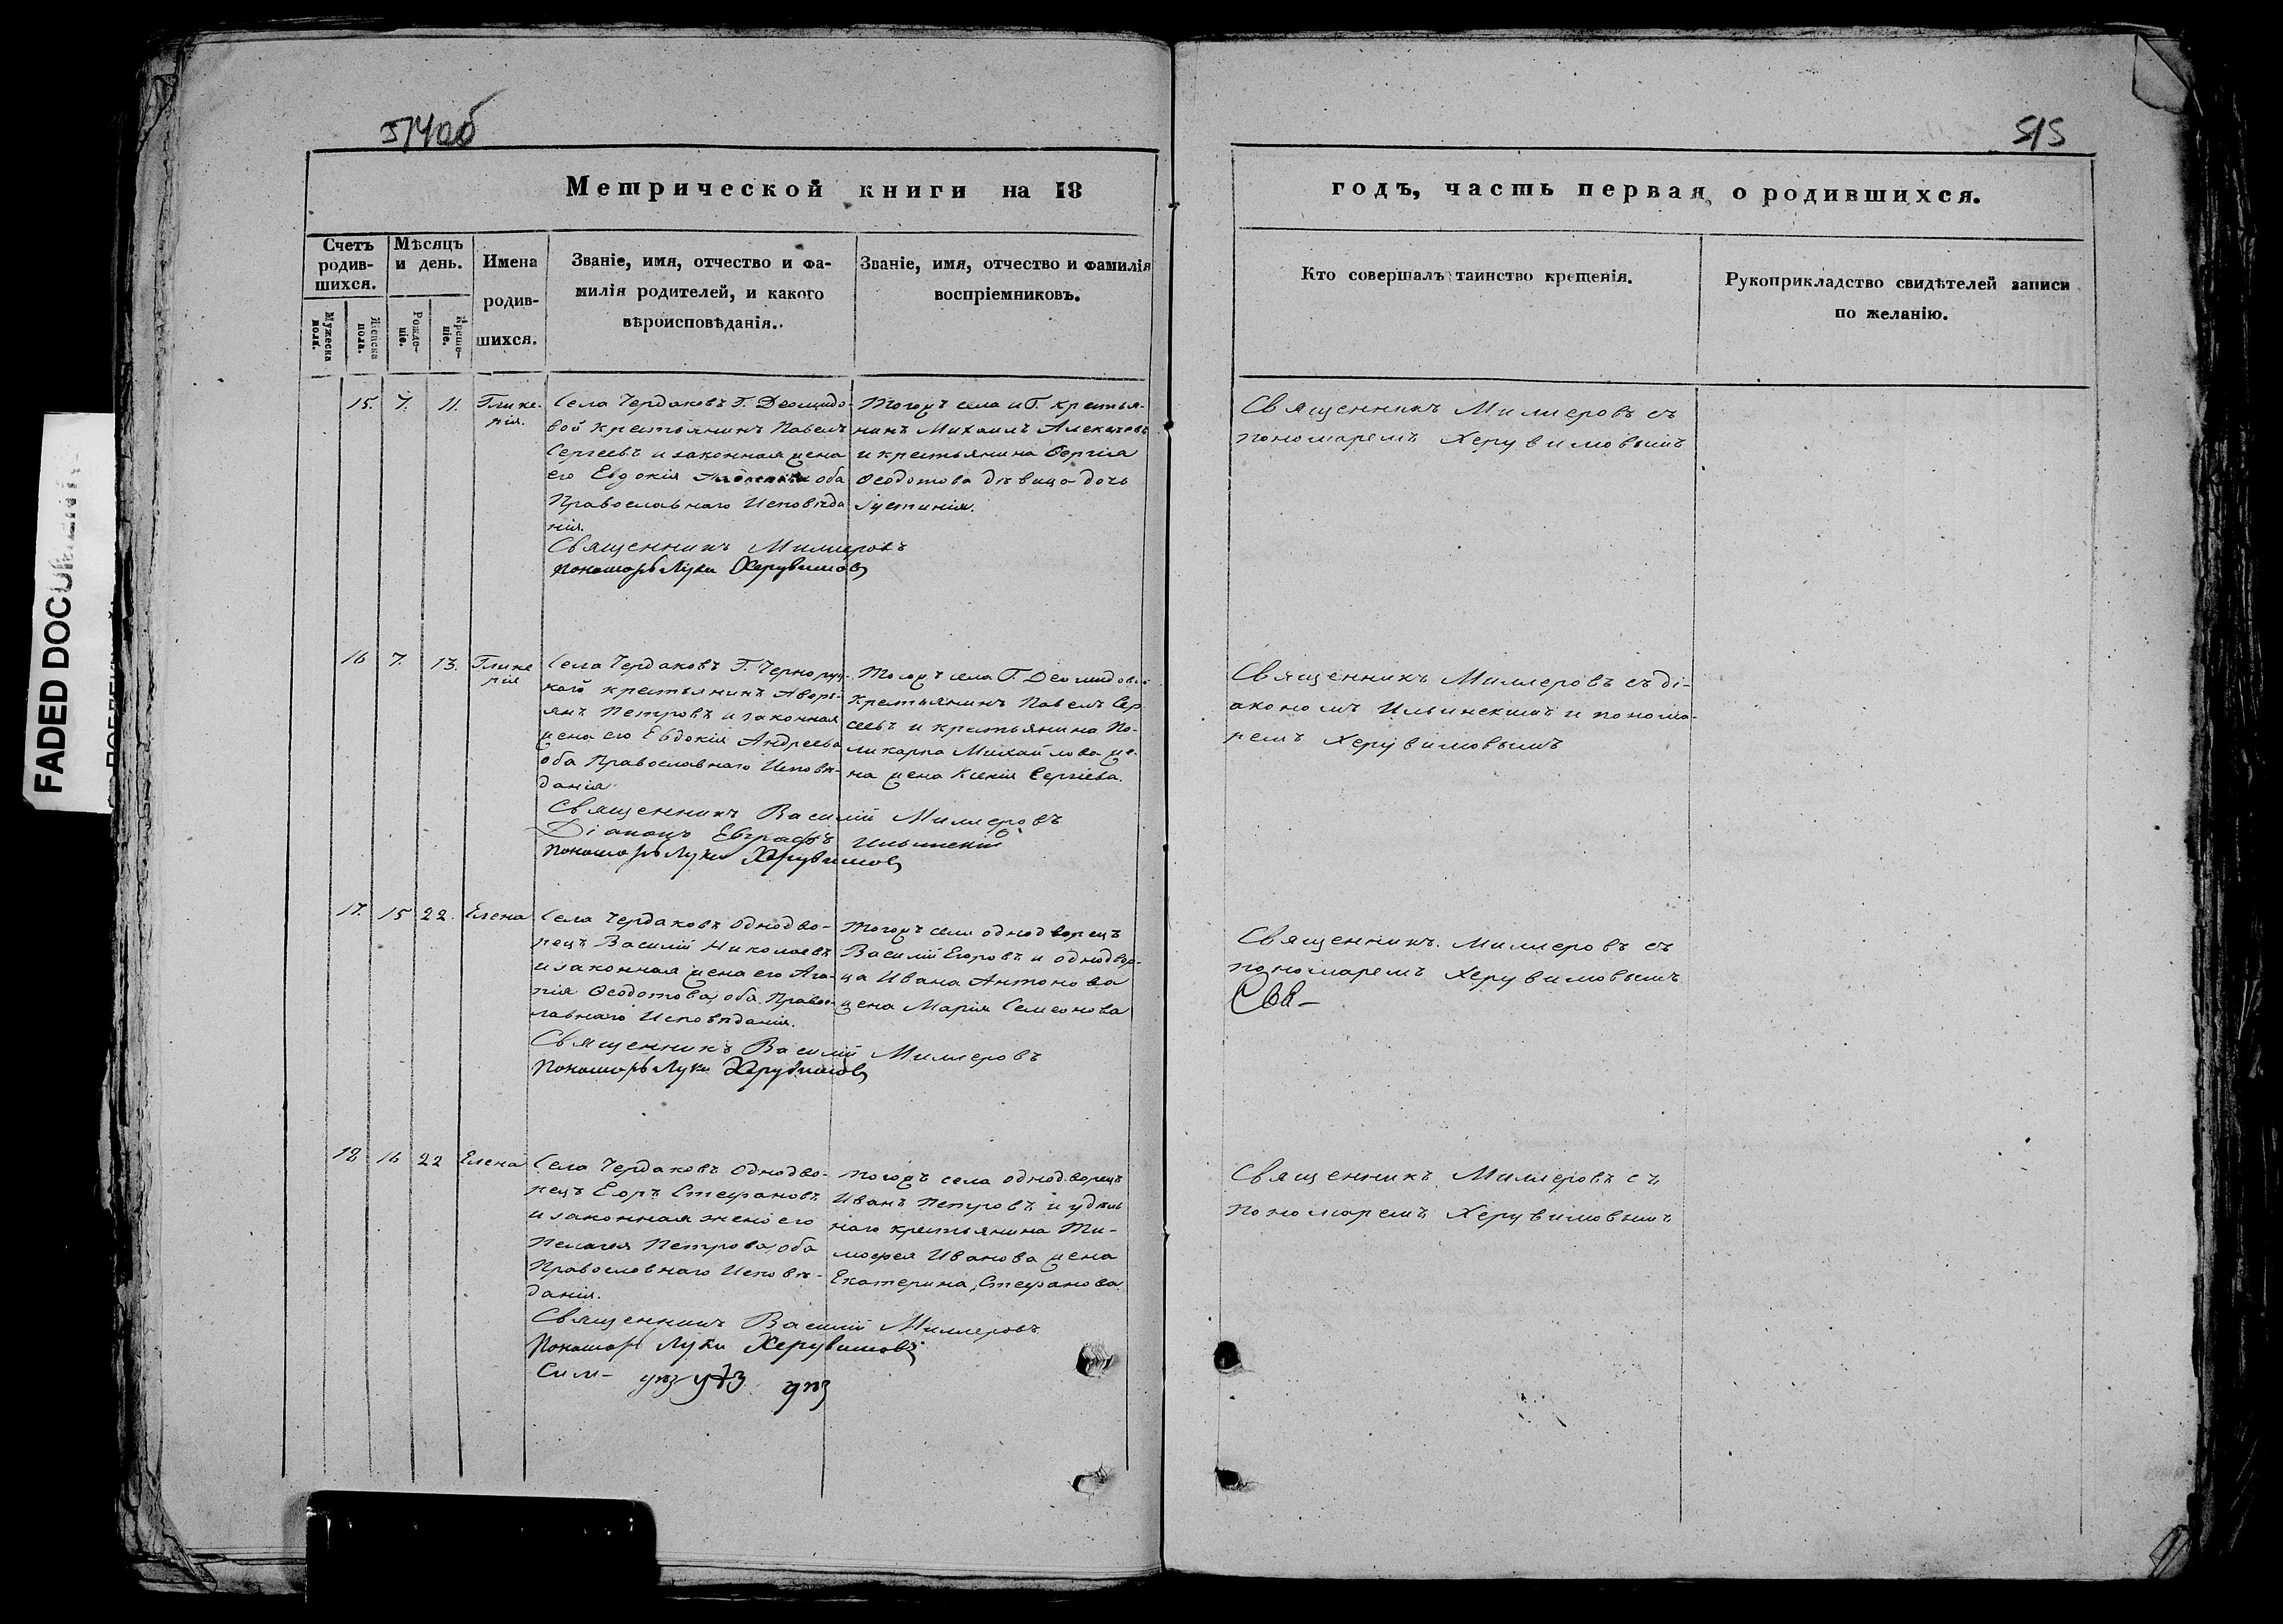 514об
515
Метрической книги на 18
годъ, часть первая, о родившихся.
Счетъ родив-
шихся.
Мѣсяцъ
и день.
Имена
родив-
шихся.
Званіе, имя, отчество и фа-
милія родителей, и какого
вѣроисповѣданія.
Званіе, имя, отчество и фамилія
воспріемниковъ.
Кто совершалъ таинство крещенія.
Рукоприкладство свидѣтелей записи
по желанію.
Мужеска
пола.
Женска
пола.
Рожде-
ніе.
Креще-
ніе.
15. 7. 11. Глике-
рія.
Села Чердаковъ Г. Демидо-
вой крестьянинъ Павелъ
Сергеевъ и законная жена
его Евдокія оба
Православнаго Исповѣда
нія.
Священникъ Миллеровъ
Пономарь Лука Херувимовъ
Тогожъ села и Г. крестья-
нинъ Михаилъ
и крестьянина Сергія
Ѳеодотова дѣвица дочь
Іустинія.
Священникъ Миллеровъ съ
пономаремъ Херувимовымъ
16 7. 13. Глике
рія
Села Чердаковъ Г.
крестьянинъ Аверь-
янъ Петровъ и законная
жена его Евдокія Андреева
оба Православнаго Исповѣ-
данія.
Священникъ Василій Миллеровъ
Діаконъ Евграфъ Ильинскій
Пономарь Лука Херувимовъ
Тогожъ села Г. Демидовой
крестьянинъ Павелъ Сер
геевъ и крестьянина По-
ликарпа Михайлова же-
на жена Ксенія Сергіева.
Священникъ Миллеровъ съ ді-
акономъ Ильинскимъ и понома-
ремъ Херувимовымъ
17. 15 22. Елена
Села Чердаковъ однодво-
рецъ Василій Николаевъ
и законная жена его Ага-
пія Ѳеодотова, оба Правос-
лавнаго Исповѣданія.
Священникъ Василій Миллеровъ
Пономарь Лука Херувимовъ
Тогожъ села однодворецъ
Василій Егоровъ и однодвор-
ца Ивана Антонова
жена Марія Семенова
Священникъ Миллеровъ съ
пономаремъ Херувимовымъ
Свя-
18 16 22 Елена
Села Чердаковъ Однодво-
рецъ Егоръ Стефановъ
и законная жена его
Пелагея Петрова, оба
Православнаго Исповѣ-
данія.
Священникъ Василій Миллеровъ
Пономарь Лука Херувимовъ
Сим- упз уѣз упз
Тогожъ села однодворецъ
Иванъ Петровъ и удѣль
наго крестьянина Ти-
моѳея Иванова жена
Екатерина Стефанова
Священникъ Миллеровъ съ
пономаремъ Херувимовымъ
FADED DOCUMENT